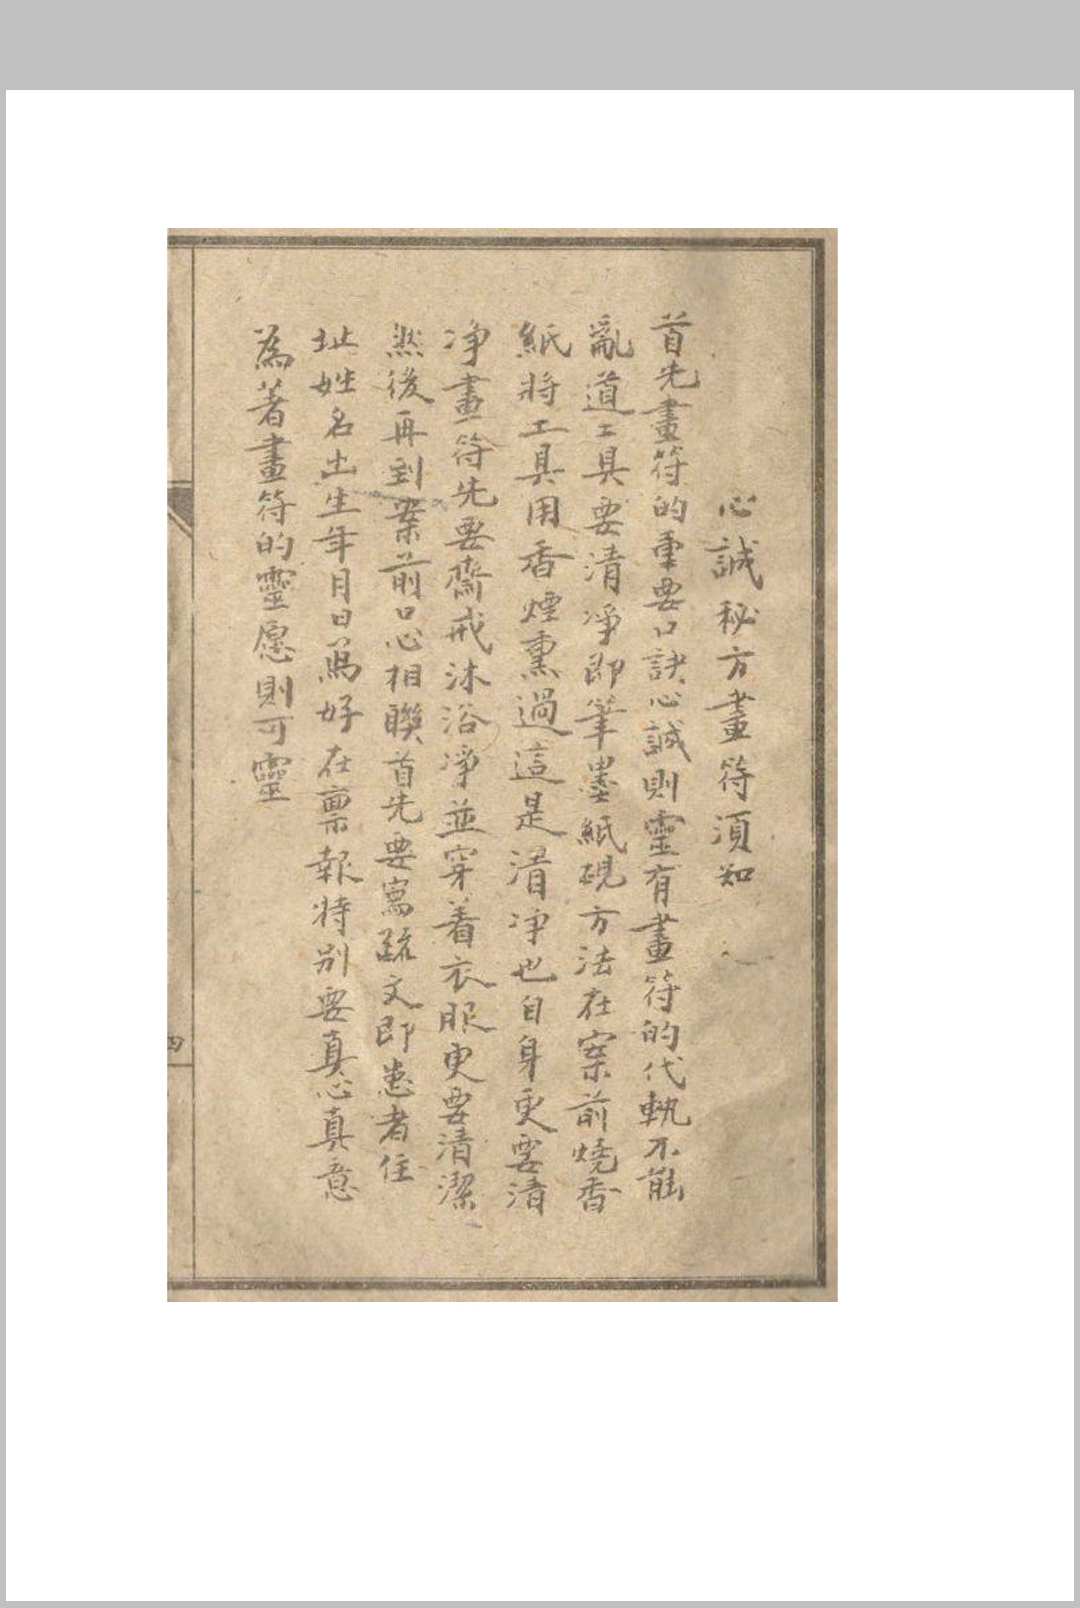 心誠秘方畫符須知
首先畫符的重要口訣心誠則靈有畫符的代執不能
亂道工具要清净即筆墨紙硯方法在案前燒香
紙將工具用香煙熏過這是清净也自身更要清
净畫符先要齋戒沐浴淨並穿着衣服更要清潔
然後再到案前口心相聯首先要寫疏文即患者住
址姓名出生年月日寫好在禀報特别要真心真意
為著畫符的靈愿則可靈
四